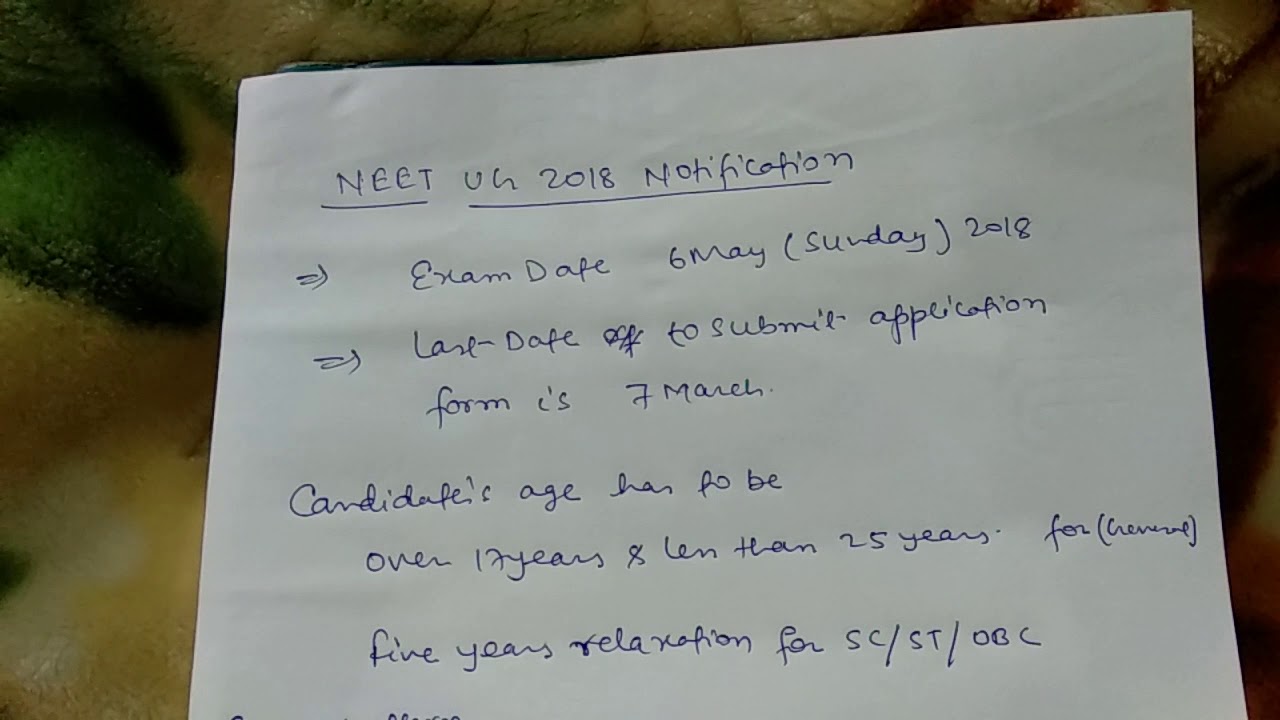 NEET UG 2018 Notification
⇒ Exam Date 6 May (Sunday) 2018
⇒ Last Date to submit application
form is 7 March.
Candidate's age has to be
over 17 years & less than 25 years. for (General)
five years relaxation for SC/ST/OBC